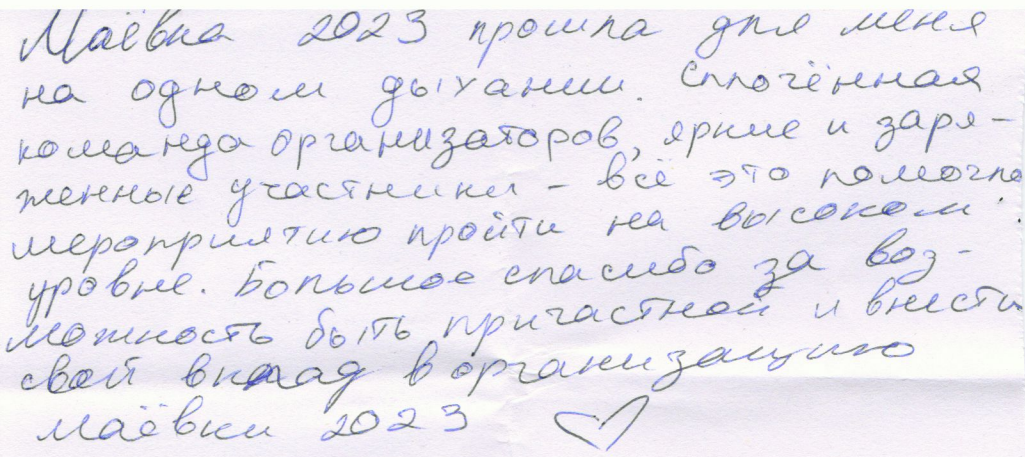 Маёвка 2023 прошла для меня
на одном дыхании. Сплочённая
команда организаторов, яркие и заря-
женные участники - всё это помогло
мероприятию пройти на высоком
уровне. Большое спасибо за воз-
можность быть причастной и внести
свой вклад в организацию
маёвки 2023 ♡